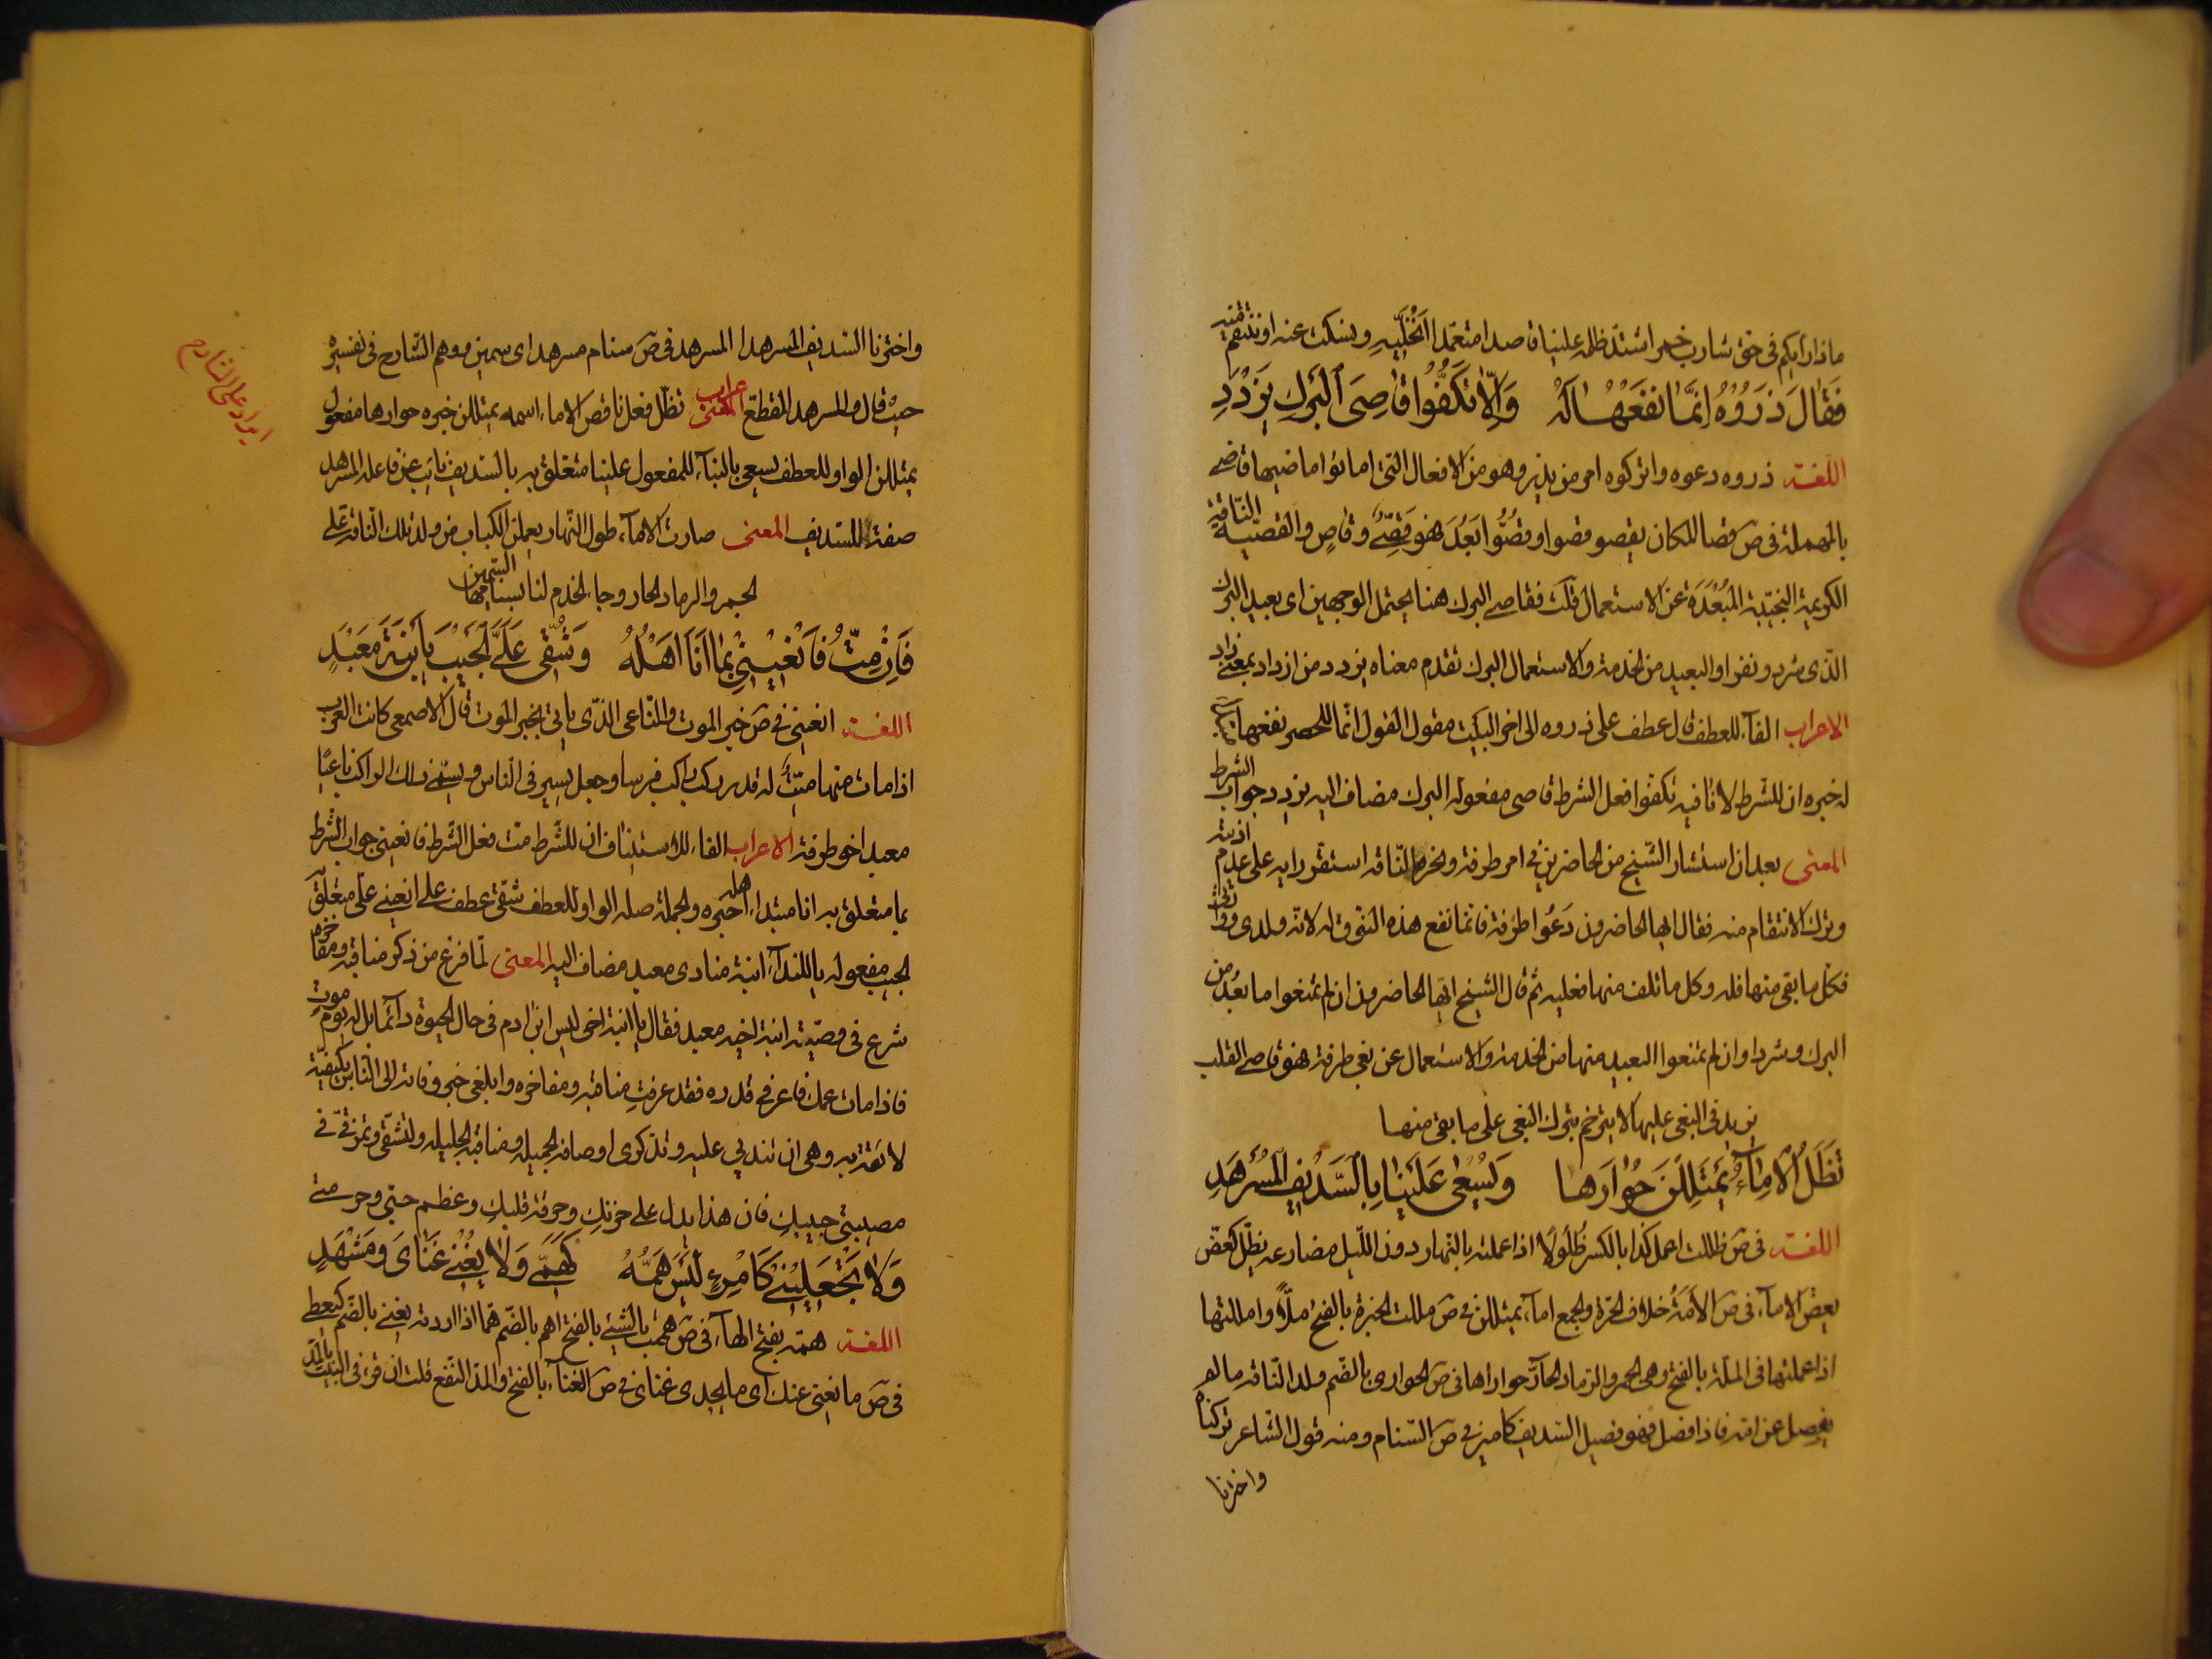 ماذا رأيكم فى حق شارب خمر اشتد ظلمه علينا قاصدا متعمدا انخليه ونسكت عنه او ننتقم منه
فَقَالَ ذَرُوهُ اِنَّمَا نَفْعُهَا لَهُ وَاِلَّا تَكُفُّوا قَاصِىَ الْبَرْكِ يَزْدَدِ
اللغة ذروه دعوه واتركوه امر من يذر وهو من الافعال التى اماتوا ماضيها قاصى
بالمهملة فى ص قصا المكان يقصو قصوا وقصُوّا بَعُدَ فهو قَصِىٌّ وقاصٍ والقصيّة الناقة
الكريمة النجيبة المُبْعَدَة عن الاستعمال قلت فقاصى البرك هنا يحتمل الوجهين اى بعيد البرك
الّذى شرد ونفر او البعيد من الخدمة والاستعمال البرك تقدم معناه يزدد من ازداد بمعنى زاد
الاعراب الفآء للعطف قال عطف على ذروه الى اخر البيت مقول القول انّما للحصر نفعها
له خبره ان للشرط لا نافيه تكفوا فعل الشرط قاصى مفعوله البرك مضاف اليه يزدد جواب الشرط
المعنى بعد ان استشار الشيخ من الحاضرين فى امر طرفة ونحره الناقه استقر رايه على عدم اذيته
وترك الانتقام منه فقال ايها الحاضرون دَعُوا طرفة فانما نفع هذه النوق له لانه ولدى ووارثى
فكل ما بقى منها فله وكل ما تلف منها فعليه ثم قال الشيخ ايّها الحاضرون ان لم تمنعوا ما بعُد من
البرك وشرد او ان لم تمنعوا البعيد منها من الخدمة والاستعمال عن بغى طرفة فهو قاصى القلب
يزيد فى البغى عليها لا يترحّم بترك البغى على ما بقى منها
تَظَلُّ الْاِمَآءُ يَمْتَلِلْنَ حُوَارَهَا وَيُسْعٰى عَلَيْنَا بِالسَّدِيْفِ الْمُسَرْهَدِ
اللغة فى ص ظللت اعمل كذا بالكسر ظُلُولًا اذا عملته بالنهار دون اللّيل مضارعه يظلّ كعضّ
يعضّ الامآء فى ص الأَمَةُ خلاف الحرّة والجمع امآء يمتللن فى ص مللت الخبزة بالفتح املّ وامللتها
اذا عملتها فى الملّة بالفتح وهى الجمر والرماد الحارّ حوارها فى ص الحوار بالضّم ولد الناقة ما لم
يفصل عن امه فاذا فصل فهو فصيل السّديف كامير فى ص السّنام ومنه قول الشاعر تركناه
واخترنا
واخترنا السّديف المسرهدا المسرهد فى ص سنام مسرهد اى سمين ووهم الشّارح فى تفسيره
حيث قال والمسرهد المقطّع الاعراب تظلّ فعل ناقص الاماء اسمه يمتللن خبره حوارها مفعول
يمتللن الواو للعطف يسعى بالبنآء للمفعول علينا متعلق به بالسّديف نايب عن فاعله المسرهد
صفة للسّديف المعنى صارت الامآء طول النّهار يعملن الكباب من ولد تلك الناقة على
الجمر والرماد الحار وجاء الخدم لنا بسنامها السّمين
فَاِنْ مِتُّ فَانْعَيْنِى بِمَا اَنَا اَهْلُهُ وَشُقِّى عَلَىَّ الْجَيْبَ يَا اِبْنَةَ مَعْبَدٍ
اللغة انعينى فى ص خبر الموت والنّاعى الذّى ياتى بخبر الموت قال الاصمعى كانت العرب
اذا مات منها ميّتٌ له قدر ركب راكب فرسا وجعل يسير فى الناس ويسمّى ذلك الراكب ناعيًا
معبد اخو طرفة الاعراب الفاء للاستيناف ان للشّرط مت فعل الشّرط فانعينى جواب الشّرط
بما متعلق به انا مبتدا اهله خبره والجملة صله الواو للعطف شقّى عطف على انعينى علىّ متعلّق
الجيب مفعوله يا للندآء ابنة منادى معبد مضاف اليه المعنى لمّا فرغ من ذكر مناقبه ومفاخره
شرع فى وصيّته ابنة اخيه معبد فقال يا ابنة اخى ليس ابن ادم فى حال الحيوة دآئما بل له يوم موت
فاذا مات عمك فاعرفى قدره فقد عرفتِ مناقبه ومفاخره وابلغى خبر وفاته الى النّاس بكيفيّة
لائقة به وهى ان تندبى عليه وتذكرى اوصافه الجميله ومناقبه الجليله ولتشقّى وتمزقى فى
مصيبتى جيبكِ فان هذا يدل على حزنكِ وحرقة قلبكِ وعظم حبّى وحرمتى
وَلَا تَجْعَلِيْنِى كَامْرِءٍ لَيْسَ هَمُّهُ كَهَمِّى وَلَا يُغْنِى غَنَاىَ وَمَشْهَدِى
اللغة همّه بفتح الهآء فى ص هممت بالشّيئ بالفتح اهم بالضّم همّا اذا اردته يغنى بالضّم كيعطى
فى ص ما يغنى عنك اى ما يجدى غناى فى ص الغنآء بالفتح والمدّ النّفع قلت ان قرئ فى البيت بالمدّ
ايراد على الشارح